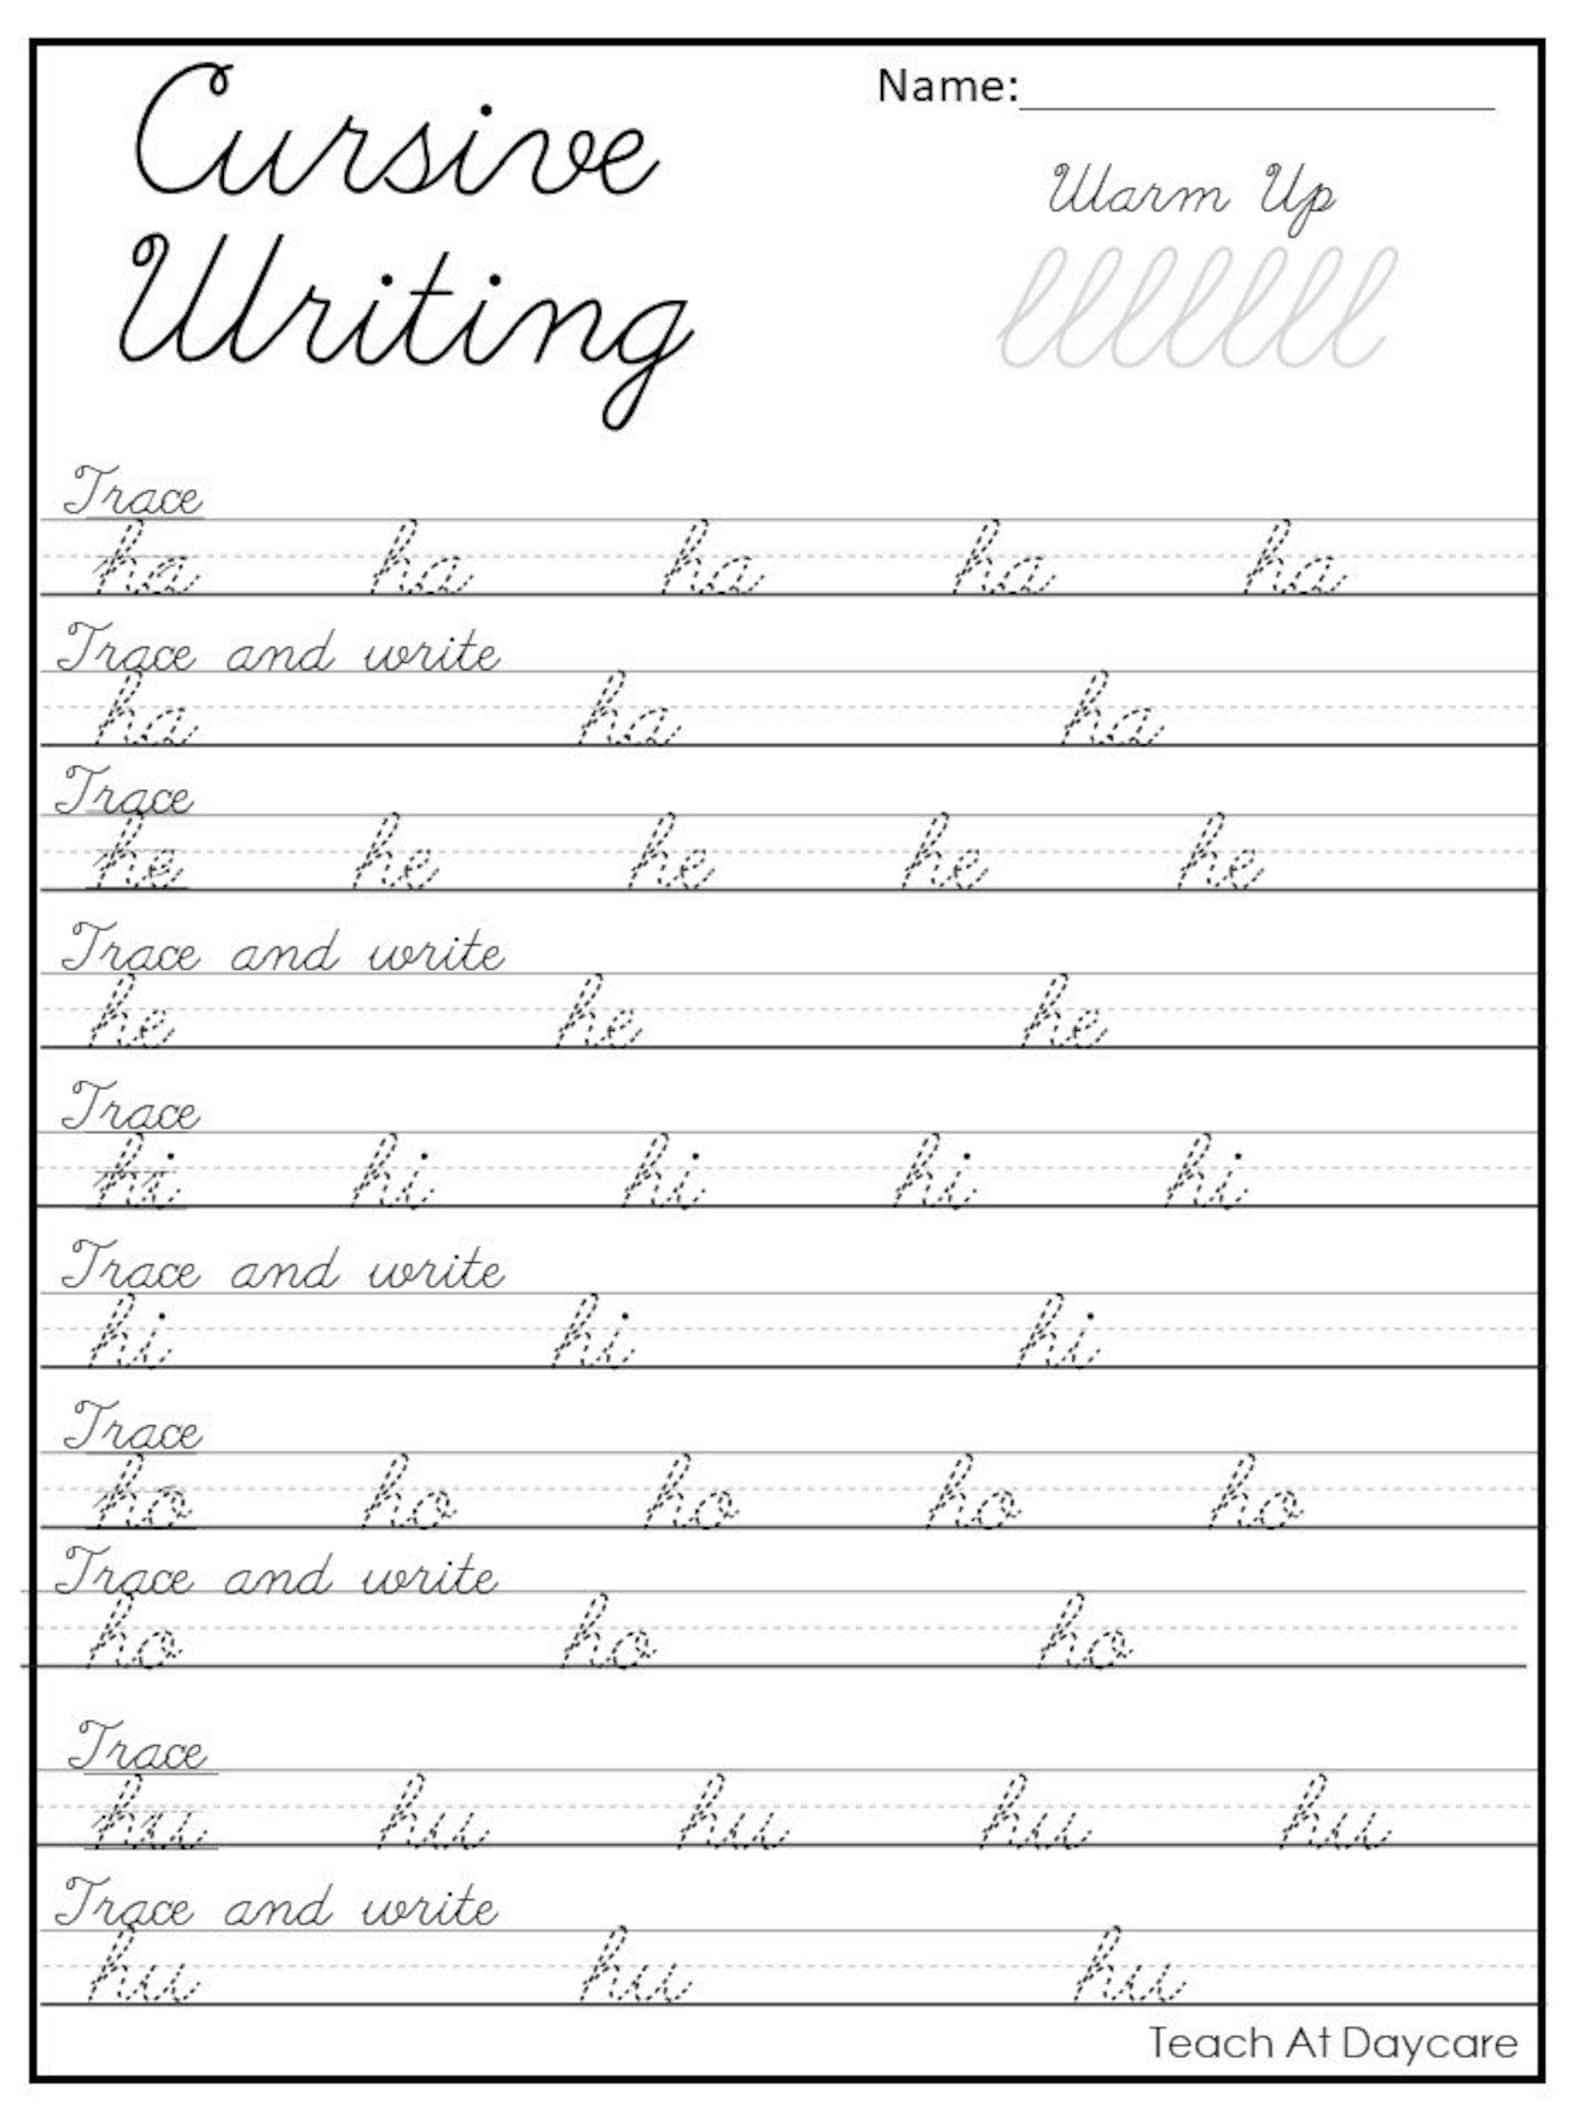 Cursive
Writing
Name:
Warm Up
lllllll
Trace
ha ha ha ha ha
Trace and write
ha ha ha
Trace
he he he he he
Trace and write
he he he
Trace
hi hi hi hi hi
Trace and write
hi hi hi
Trace
ho ho ho ho ho
Trace and write
ho ho ho
Trace
hu hu hu hu hu
Trace and write
hu hu hu
Teach At Daycare